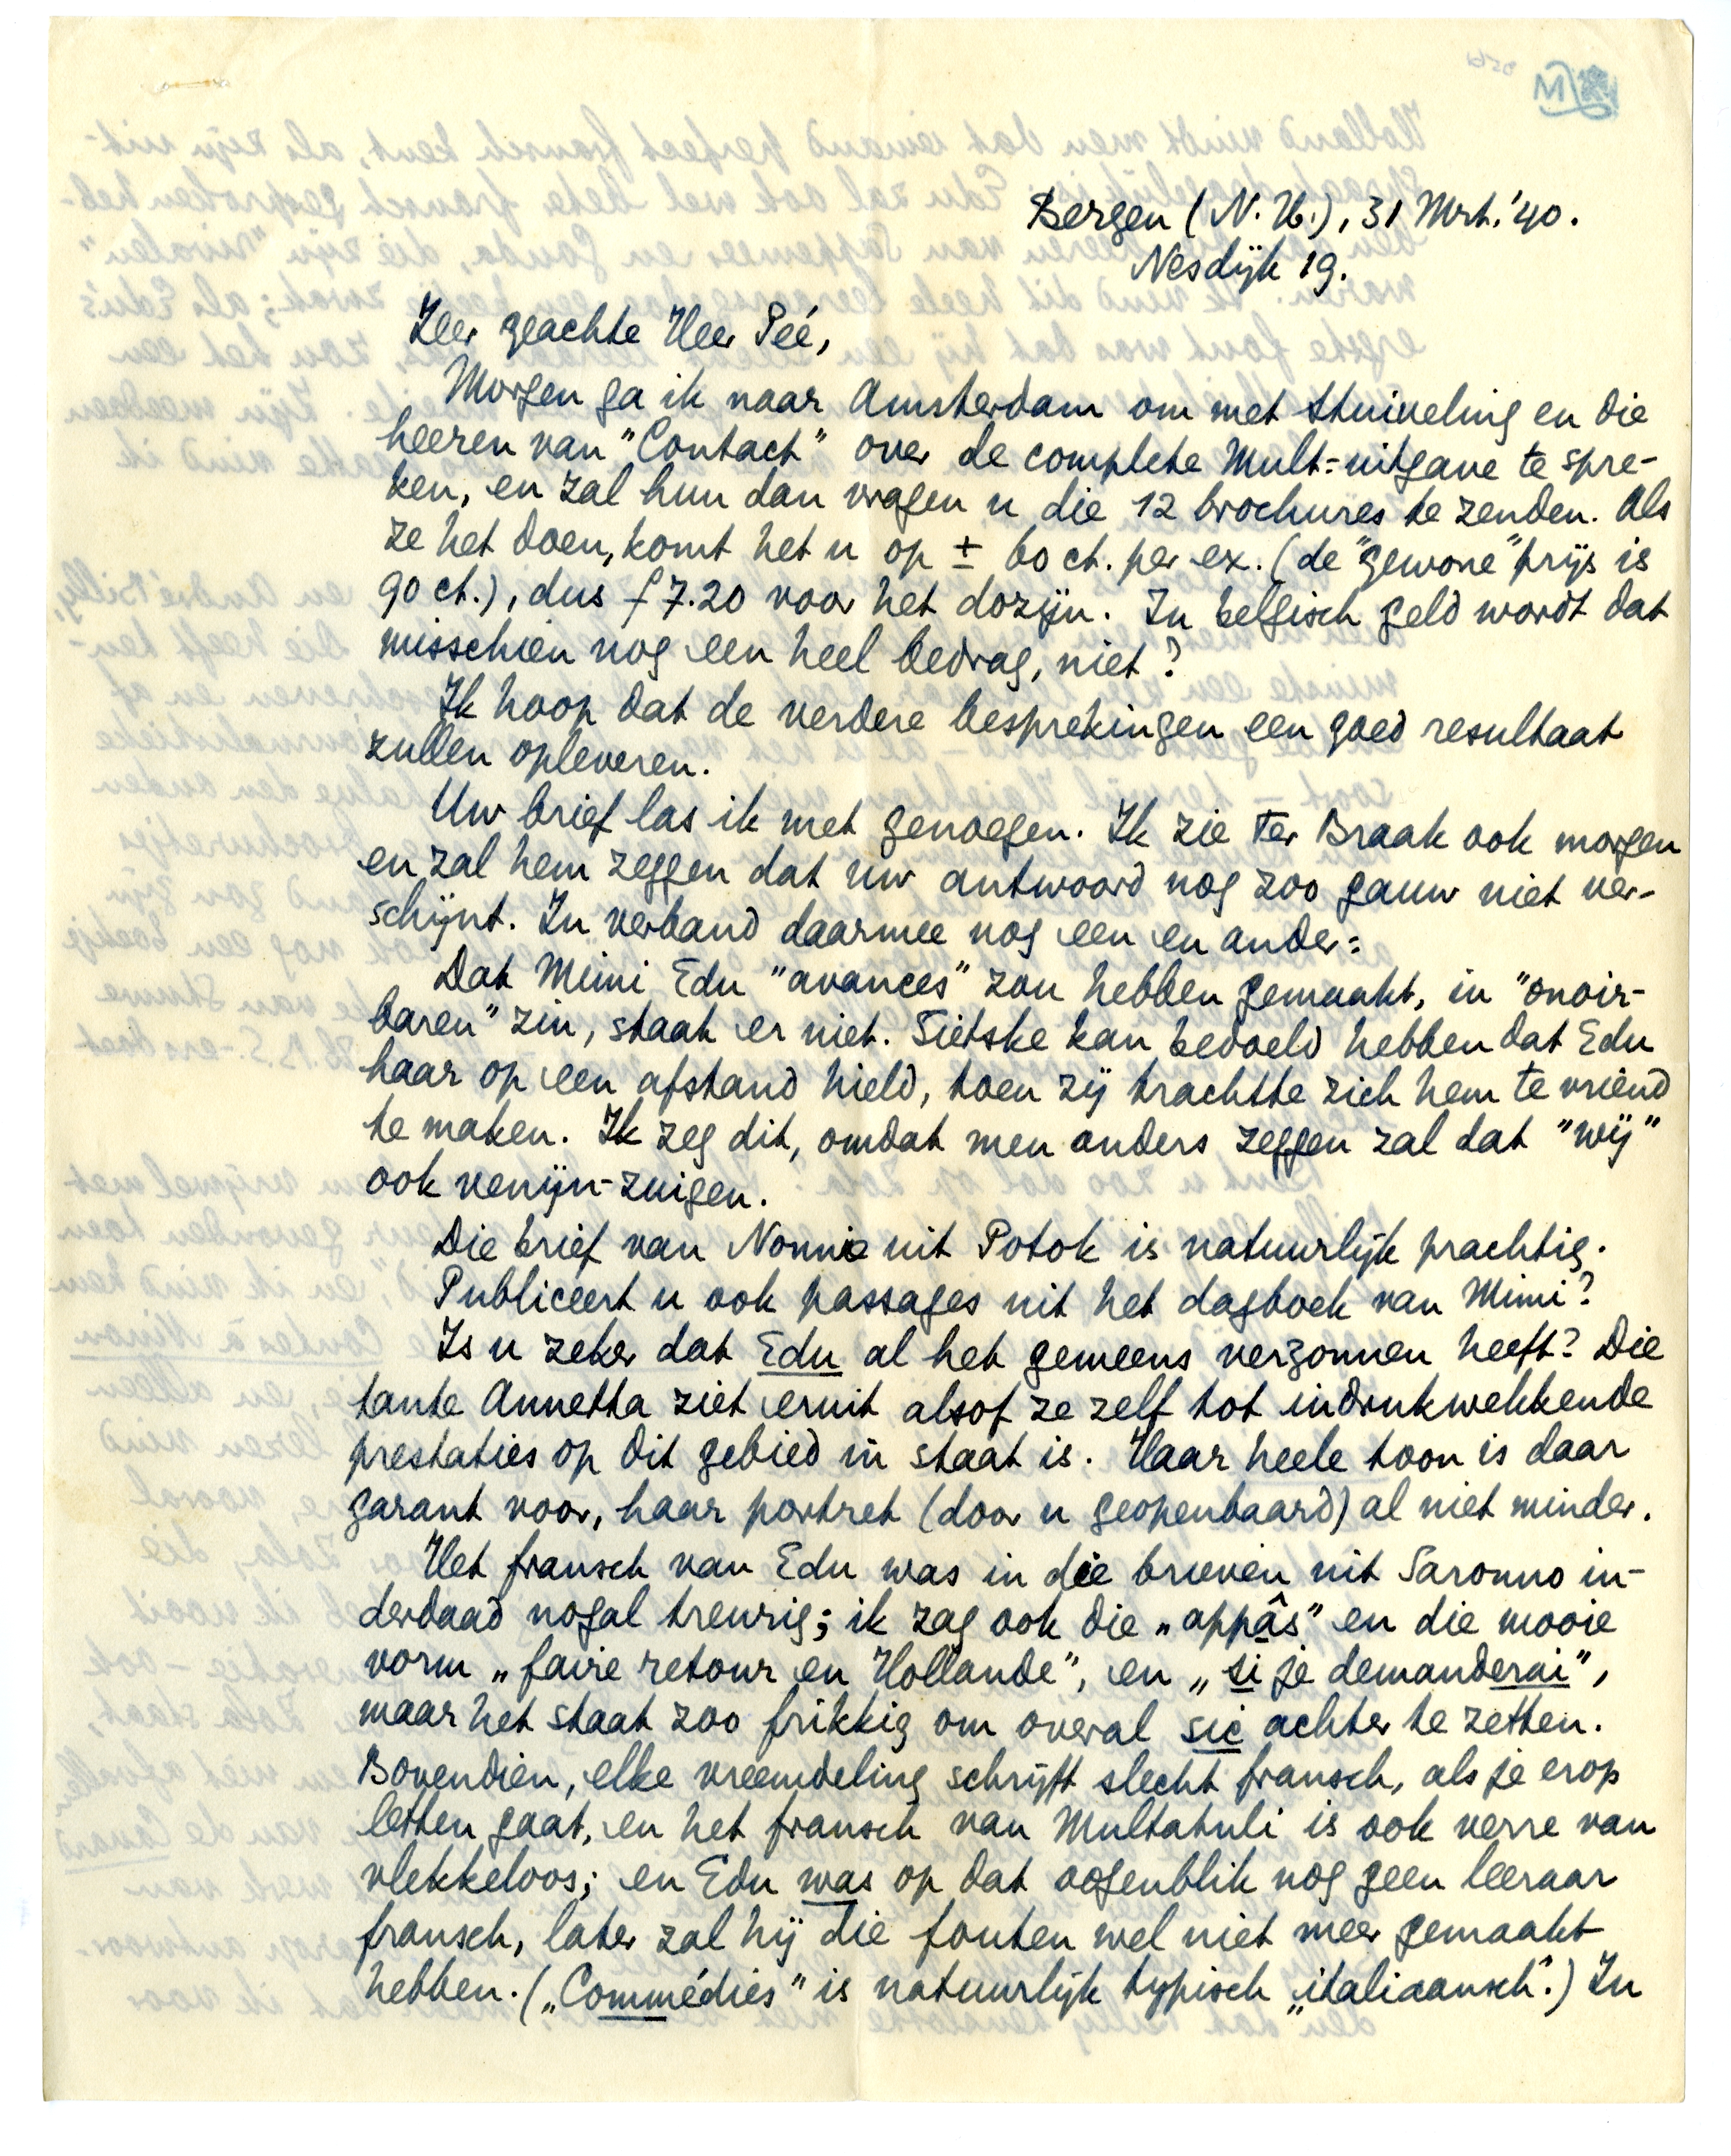 Bergen (N.H.), 31 Mrt. '40.
Nesdijk 19.
Zeer geachte Heer Peé,
Morgen ga ik naar Amsterdam om met Stuiveling en die
heeren van "Contact" over de complete Mult.-uitgave te spre-
ken, en zal hun dan vragen u die 12 brochures te zenden. Als
ze het doen, komt het u op ± 60 ct. per ex. (de "gewone" prijs is
90 ct.), dus f 7.20 voor het dozijn. In belgisch geld wordt dat
misschien nog een heel bedrag, niet?
Ik hoop dat de verdere besprekingen een goed resultaat
zullen opleveren.
Uw brief las ik met genoegen. Ik zie Ter Braak ook morgen
en zal hem zeggen dat uw antwoord nog zoo gauw niet ver-
schijnt. In verband daarmee nog een en ander:
Dat Mimi Edu "avances" zou hebben gemaakt, in "onoir-
baren" zin, staat er niet. Sietske kan bedoeld hebben dat Edu
haar op een afstand hield, toen zij trachtte zich hem te vriend
te maken. Ik zeg dit, omdat men anders zeggen zal dat "wij"
ook venijn-zuigen.
Die brief van Nonnie uit Potok is natuurlijk prachtig.
Publiceert u ook passages uit het dagboek van Mimi?
Is u zeker dat Edu al het gemeens verzonnen heeft? Die
tante Annetta ziet eruit alsof ze zelf tot indrukwekkende
prestaties op dit gebied in staat is. Haar heele toon is daar
garant voor, haar portret (door u geopenbaard) al niet minder.
Het fransch van Edu was in die brieven uit Saronno in-
derdaad nogal treurig; ik zag ook die „appâs" en die mooie
vorm „faire retour en Hollande", en „si je demanderai",
maar het staat zoo frikkig om overal sic achter te zetten.
Bovendien, elke vreemdeling schrijft slecht fransch, als je erop
letten gaat, en het fransch van Multatuli is ook verre van
vlekkeloos; en Edu was op dat oogenblik nog geen leeraar
fransch, later zal hij die fouten wel niet meer gemaakt
hebben. („Commédies" is natuurlijk typisch „italiaansch".) In